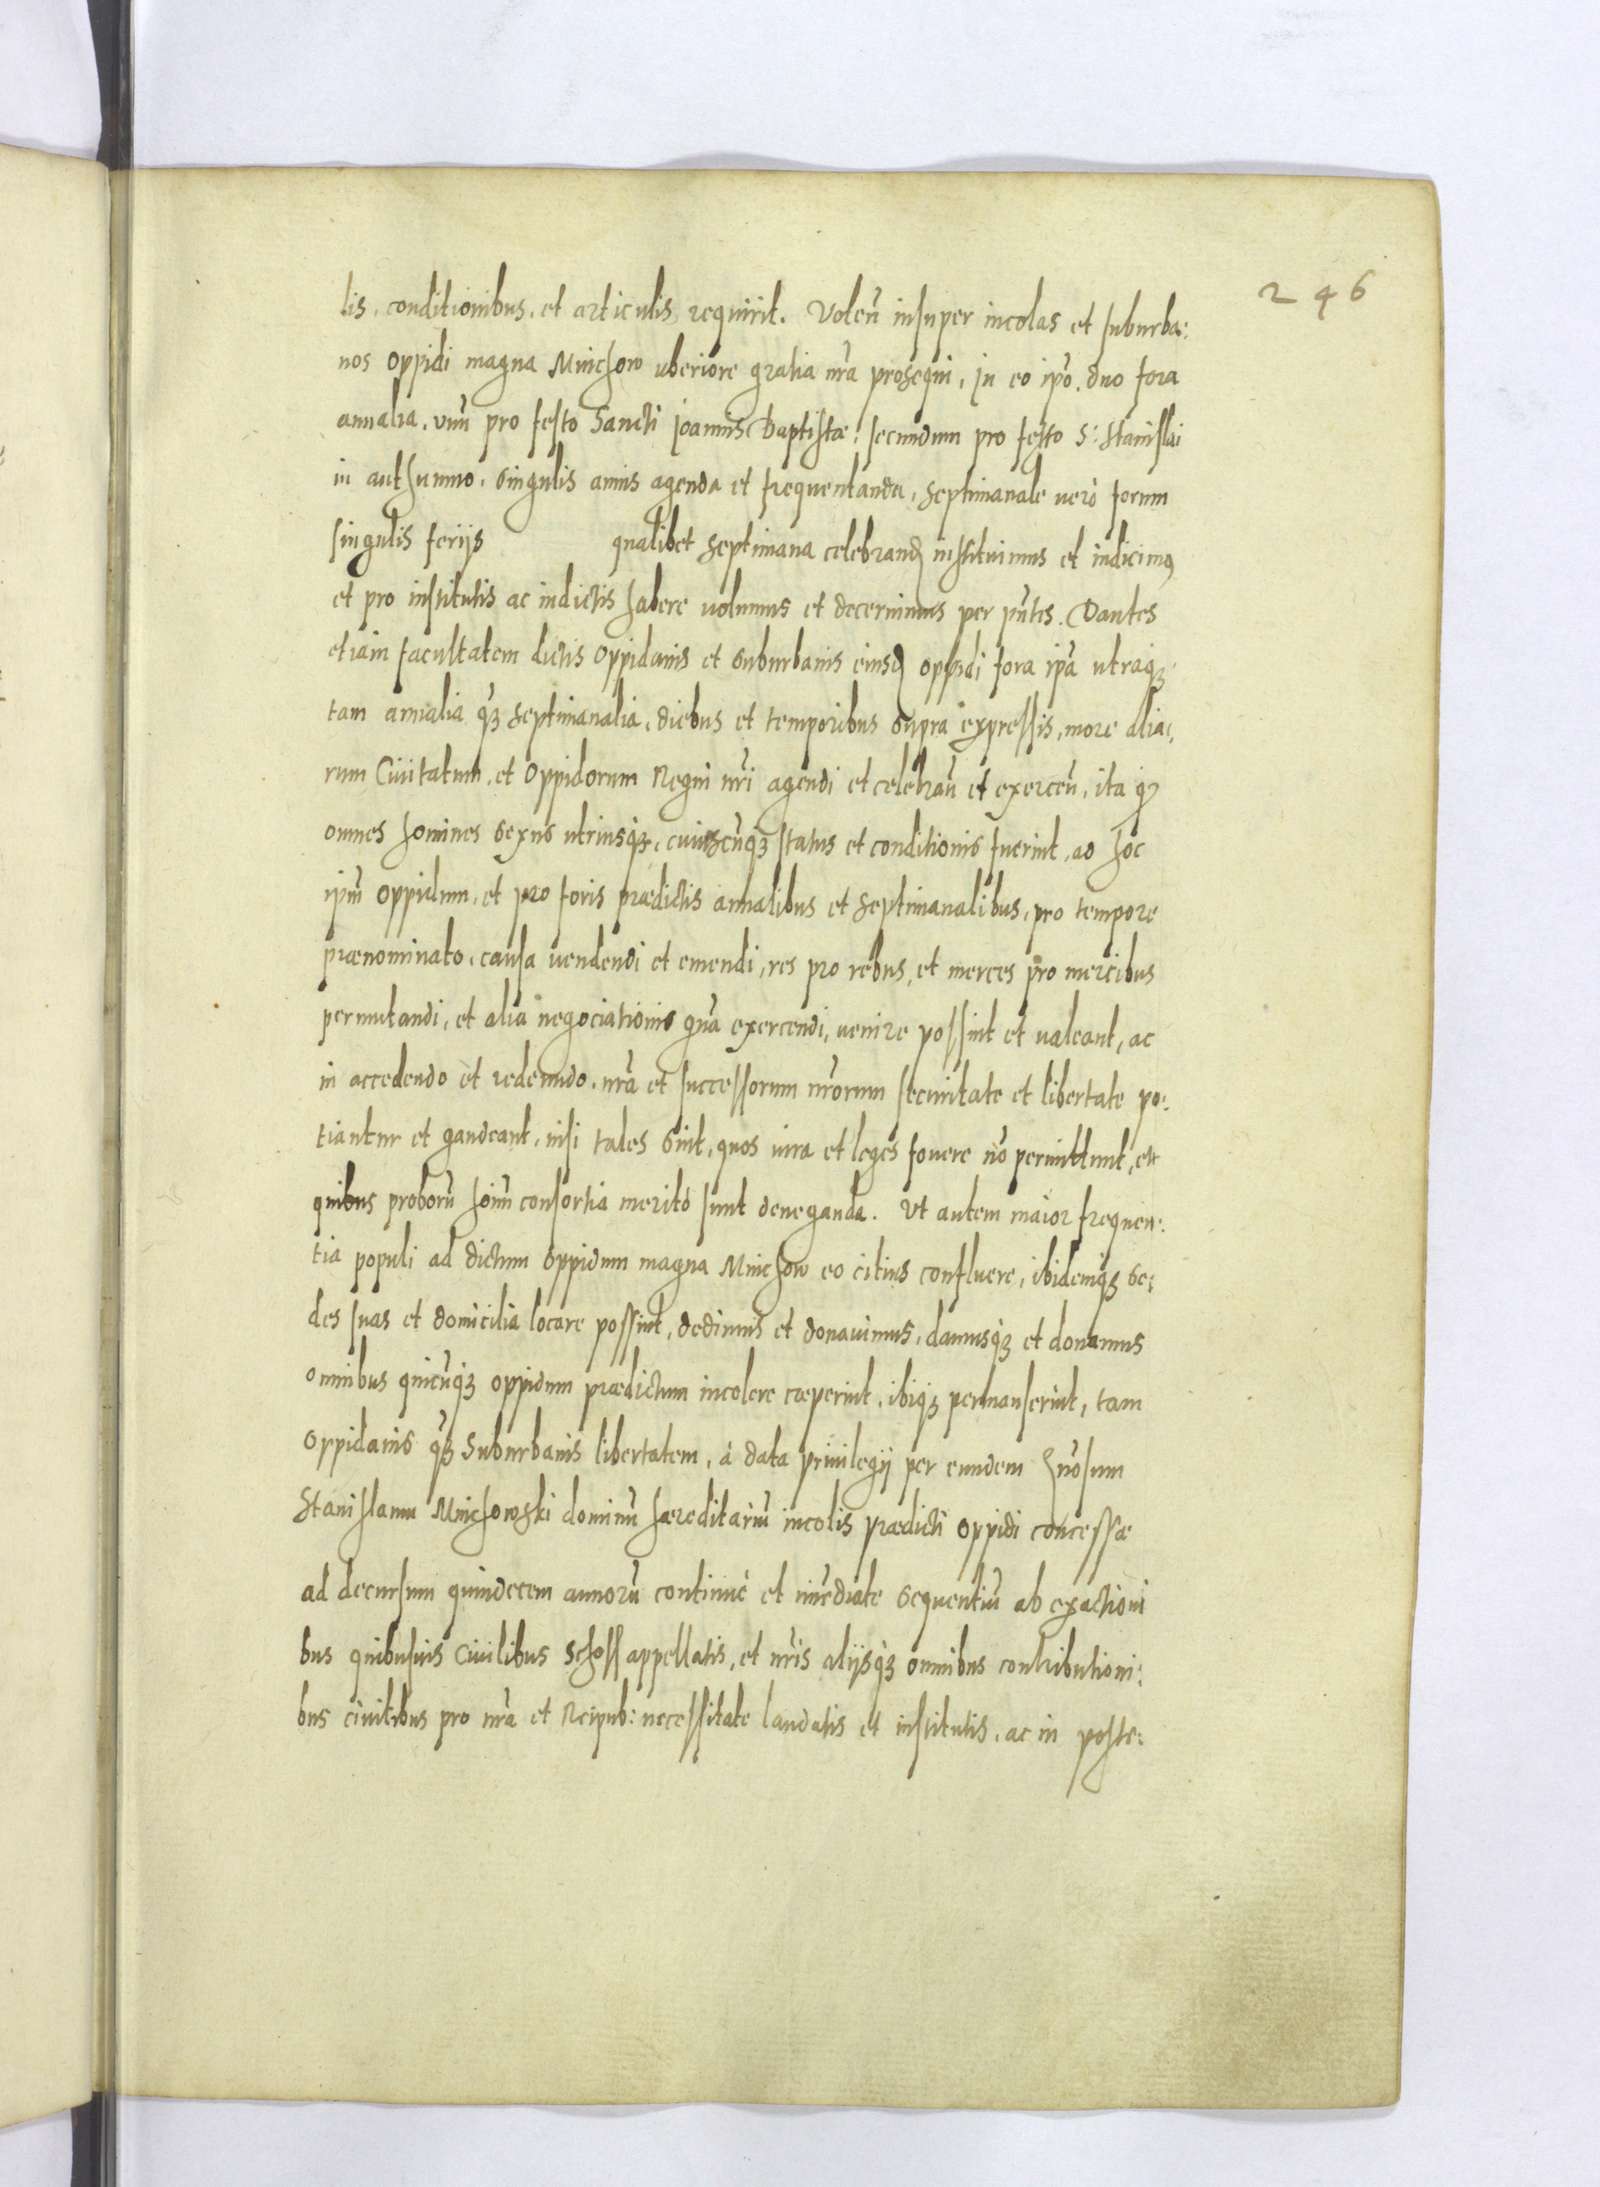 246
lis, conditionibus, et articulis requirit. Voleñ insuper incolas et suburba:
nos oppidi magna Mnichow uberiore gratia nr̃a prosequi, in eo ip̃o, duo fora
annalia, vnũ pro festo Sancti Joannis Baptistæ: secundum pro festo S: Stanislai
in authumno, singulis annis agenda et frequentanda, septimanale uerò forum
singulis ferijs qualibet septimana celebrand institvimus et indicimus
et pro institutis ac indictis habere uolumus et decernimus per pñtes. Dantes
etiam facultatem dictis oppidanis et suburbanis eiusd oppidi fora ip̃a utraq3
tam annalia q̃3 septimanalia, diebus et temporibus supra expressis, more alia:
rum Ciuitatum, et oppidorum Regni nr̃i agendi et celebrañ et exerceñ, ita q3
omnes homines sexus utriusq3, cuiuscũq3 status et conditionis fuerint, ad hoc
ip̃m oppidum, et pro foris prædictis annalibus et septimanalibus, pro tempore
prænominato, causa uendendi et emendi, res pro rebus, et merces pro mercibus
permutandi, et alia negociationis gñra exercendi, uenire possint et ualeant, ac
in accedendo et redeundo, nr̃a et successorum nr̃orum securitate et libertate po:
tiantur et gaudeant, nisi tales sint, quos iura et leges fouere nõ permittunt, et
quibus proborũ hoim̃ consortia meritò sunt deneganda. Ut autem maior frequen:
tia populi ad dictum oppidum magna Mnichow eo citius confluere, ibidemq3 se:
des suas et domicilia locare possint, dedimus et donauimus, damusq3 et donamus
omnibus quicũq3 oppidum prædictum incolere cæperint, ibiq3 permanserint, tam
oppidanis q̃3 suburbanis libertatem, à data priuilegij per eundem gñosum
Stanislaum Mnichowski dominũ hæreditariũ incolis prædicti oppidi concessæ
ad decursum quindecem annorũ continuè et im̃ediate sequentiũ ab exactioni
bus quibusuis Ciuilibus Schoss appellatis, et nr̃is alijsq3 omnibus contributioni:
bus ciuitibus pro nr̃a et Reipub: necessitate laudatis et institutis, ac in poste: